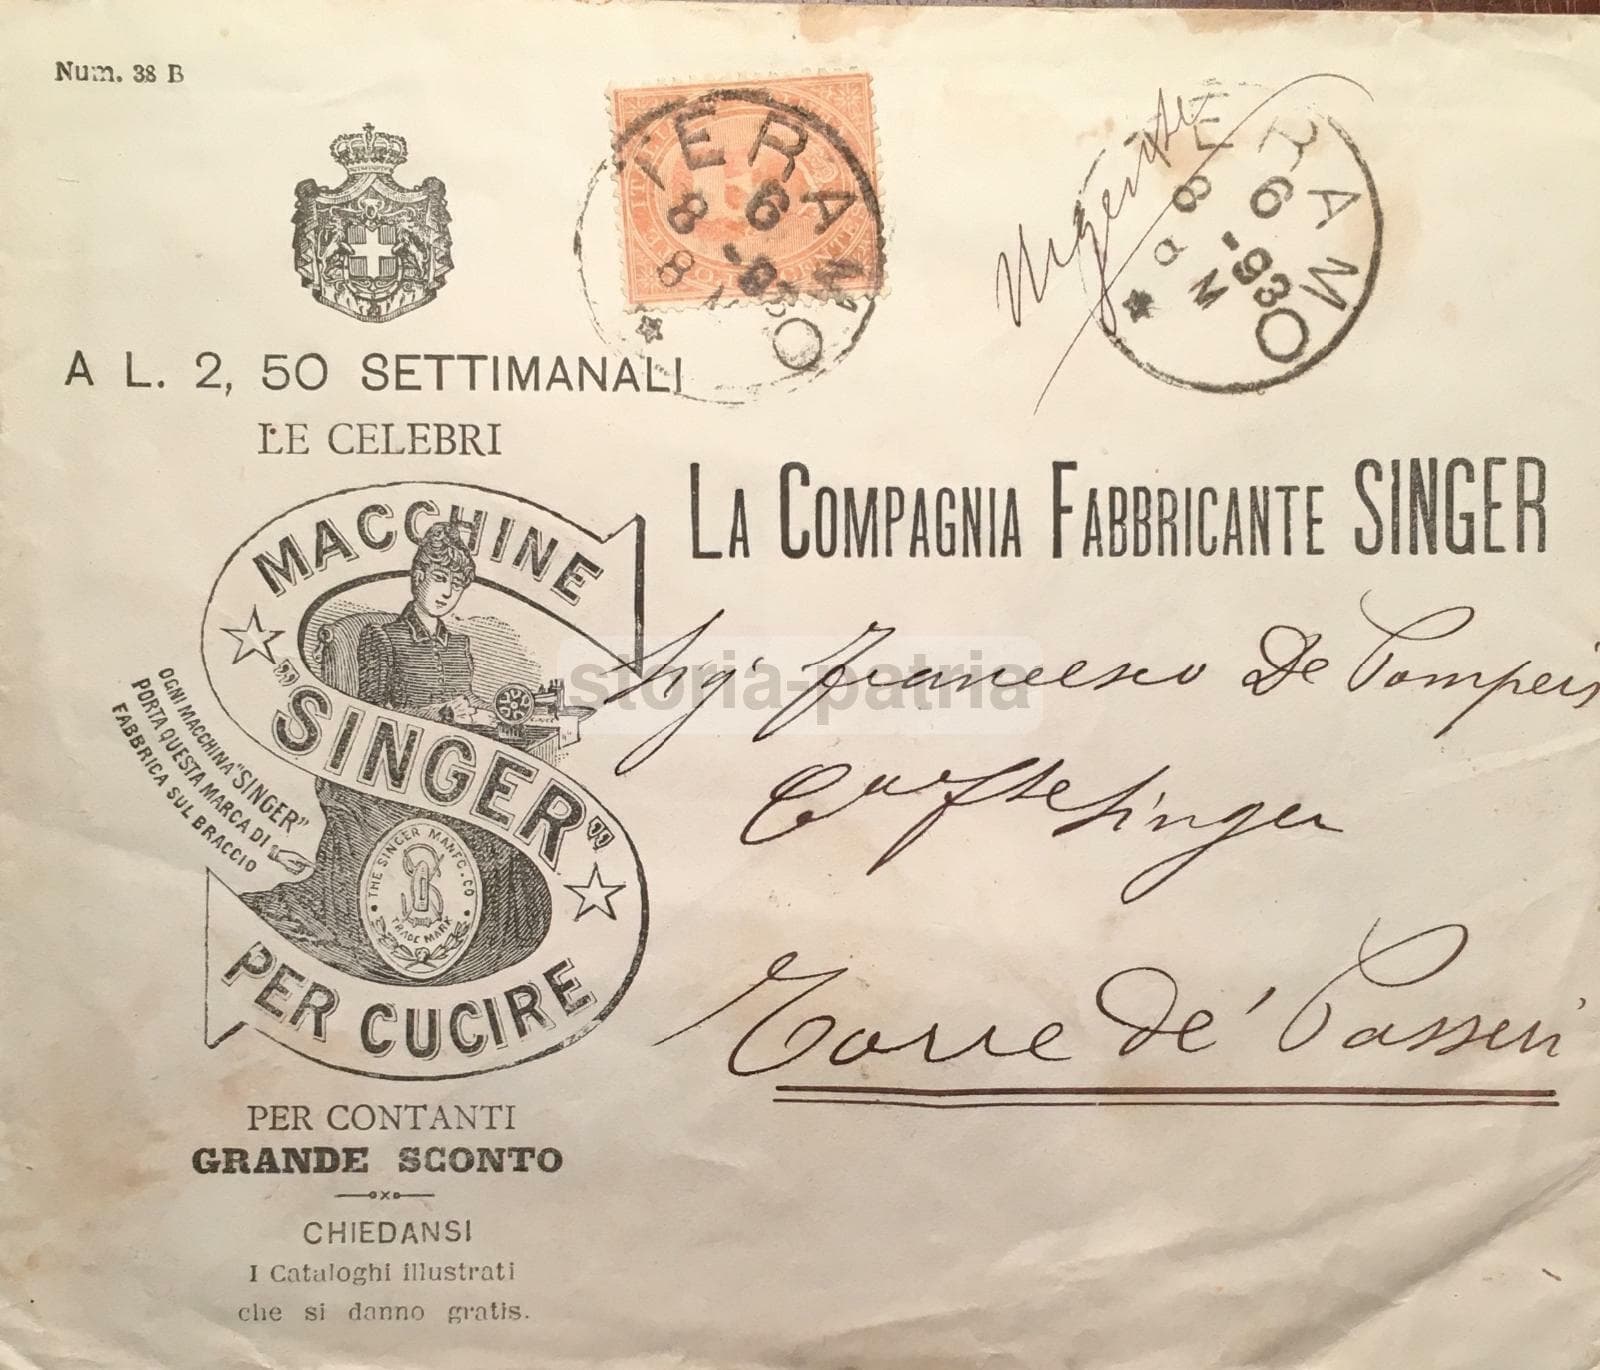 Num. 38 B
TERAMO
8 6 -93
8 M
Urgente
TERAMO
8 6 -93
8 M
A L. 2, 50 SETTIMANALI
LE CELEBRI
MACCHINE
"SINGER"
PER CUCIRE
OGNI MACCHINA "SINGER"
PORTA QUESTA MARCA DI
FABBRICA SUL BRACCIO
THE SINGER MANFG. CO
TRADE MARK
PER CONTANTI
GRANDE SCONTO
CHIEDANSI
I Cataloghi illustrati
che si danno gratis.
LA COMPAGNIA FABBRICANTE SINGER
Sig. Francesco De Pompeis
Singer
Torre de' Passeri
storia-patria